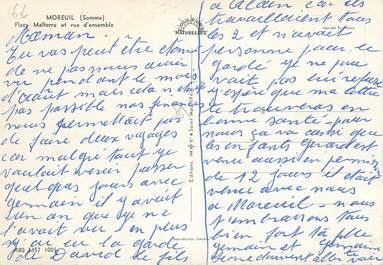 62
MOREUIL (Somme)
Place Malterre et vue d'ensemble
NATURELLES
Maman.
Tu vas peut être étonné
de ne pas nous avoir
vu pendant le mois
d'août mais cela n'était
pas possible nos finances
nous permettait pas
de faire deux voyages
car malgré tout je
voulait venir passer
quelques jours avec
germain il y avait
un an que je ne
l'avait vu en plus
j'ai eu la garde
de David le fils
à Calais, car ils
travaillaient tous
les 2 et n'avait
personne pour le
garder je ne pou
vait pas lui refuser
j'espère que ma lettre te
trouveras en
bonne santé pour
nous ça va aussi que
les enfants Gérard est
venu aussi en permission
de 12 jours il était
venu avec nous
à Moreuil. nous
t'embrassons tous
bien fort ta fille
germain et germaine